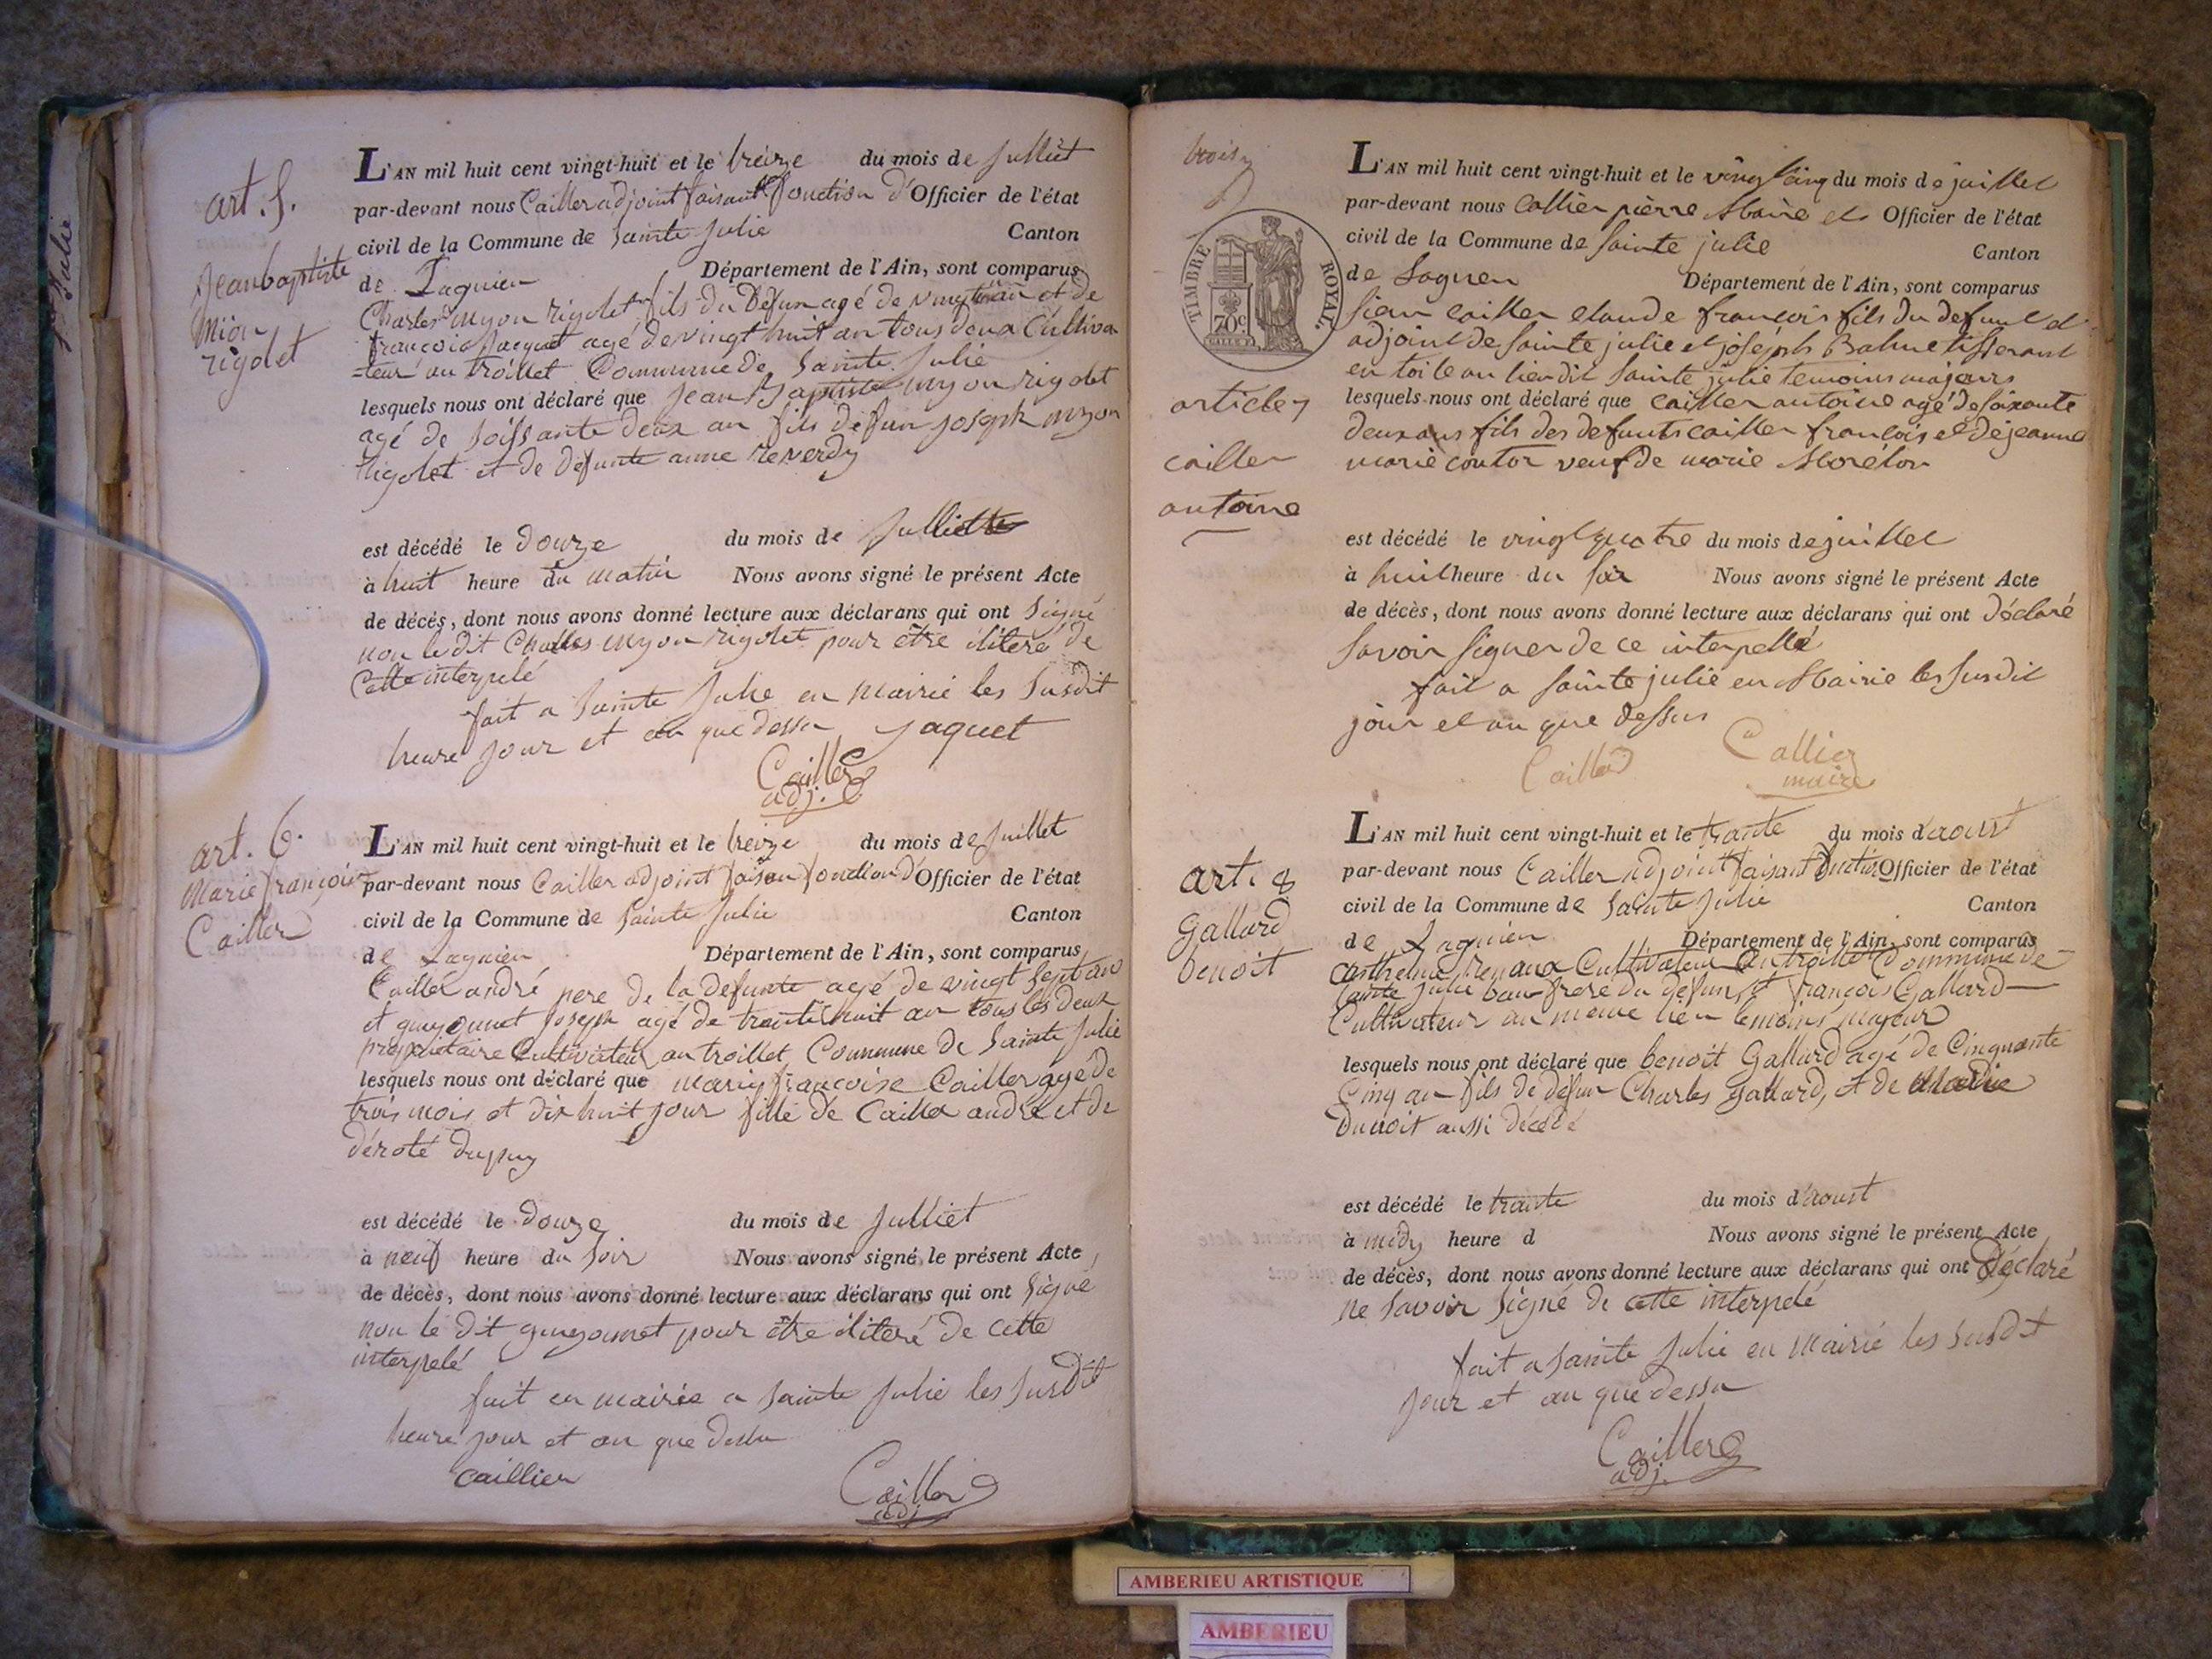 Ste Julie
art. 5.
Jean baptiste
mion
rigolet
L'AN mil huit cent vingt-huit et le treize du mois de Julliet
par-devant nous Cailler adjoint faisant fonction d'Officier de l'état
civil de la Commune de Sainte Julie Canton
de Lagnieu Département de l'Ain, sont comparus
Charles myon rigolet fils du Defun agé de vingt et de
françois Jacquet agé de vingt huit an tous deux Cultiva
-teur au troillet Commune de Sainte Julie
lesquels nous ont déclaré que Jean Baptiste myon rigolet
agé de soissante deux an fils defun joseph myon
Rigolet et de defunte anne reverdy
est décédé le douze du mois de Julliet
à huit heure du matin Nous avons signé le présent Acte
de décès, dont nous avons donné lecture aux déclarans qui ont Signé
non le dit Charles myon rigolet pour être iliteré de
Cette interpelé
fait a Sainte Julie en mairie les Susdit
heure Jour et an que dessu Jaquet
Cailler
adj.
art. 6.
Marie françoise
Cailler
L'AN mil huit cent vingt-huit et le treize du mois de Juillet
par-devant nous Cailler adjoint faisan fonction d'Officier de l'état
civil de la Commune de Sainte Julie Canton
de Lagnieu Département de l'Ain, sont comparus
Cailler andré pere de la defunte agé de vingt Sept an
et guyonnet Joseph agé de trente huit an tous les deux
propriétaire Cultivateur au troillet Commune de Sainte Julie
lesquels nous ont déclaré que marie françoise Cailler agé de
trois mois et dix huit jour fille de Cailler andré et de
déroté dupuy
est décédé le douze du mois de Julliet
à neuf heure du Soir Nous avons signé le présent Acte
de décès, dont nous avons donné lecture aux déclarans qui ont Signé
non le dit guyonnet pour être iliteré de cette
interpelé
fait en mairie a Sainte Julie les Susdit
heure jour et an que dessu
caillier Cailler
adj
trois
TIMBRE ROYAL.
70c
article 7
cailler
antoine
L'AN mil huit cent vingt-huit et le vingt cinq du mois de juillet
par-devant nous Collier pierre Maire et Officier de l'état
civil de la Commune de Sainte julie Canton
de Lagnieu Département de l'Ain, sont comparus
Sieur cailler claude françois fils du defunt et
adjoint de Sainte julie et joséph Bahue tisserant
en toile au lieu dit Sainte julie temoins majeurs
lesquels nous ont déclaré que cailler antoine agé de soixante
deux ans fils des defunts cailler françois et de jeanne
marie coutor veuf de marie Morélon
est décédé le vingt quatre du mois de juillet
à huit heure du soir Nous avons signé le présent Acte
de décès, dont nous avons donné lecture aux déclarans qui ont déclaré
savoir signer de ce interpellé
fait a sainte julie en Mairie les susdit
jour et an que dessus
Cailler Collier
maire
art. 8
Gallard
benoit
L'AN mil huit cent vingt-huit et le trante du mois d'aoust
par-devant nous Cailler adjoint faisant Officier de l'état
civil de la Commune de Sainte Julie Canton
de Lagnieu Département de l'Ain, sont comparus
anthelme renaux Cultivateur au troillet Commune de
Sainte Julie beau frere du defun et françois Gallard
Cultivateur au meme lieu temoins majeur
lesquels nous ont déclaré que benoit Gallard agé de Cinquante
Cinq an fils de defun Charles gallard, et de Marie
Dunoit aussi décédé
est décédé le trante du mois d'aoust
à midy heure d Nous avons signé le présent Acte
de décès, dont nous avons donné lecture aux déclarans qui ont Déclaré
ne savoir Signé de cette interpelé
fait a Sainte Julie en mairie les susdit
Jour et an que dessu
Cailler
adj.
AMBERIEU ARTISTIQUE
AMBERIEU